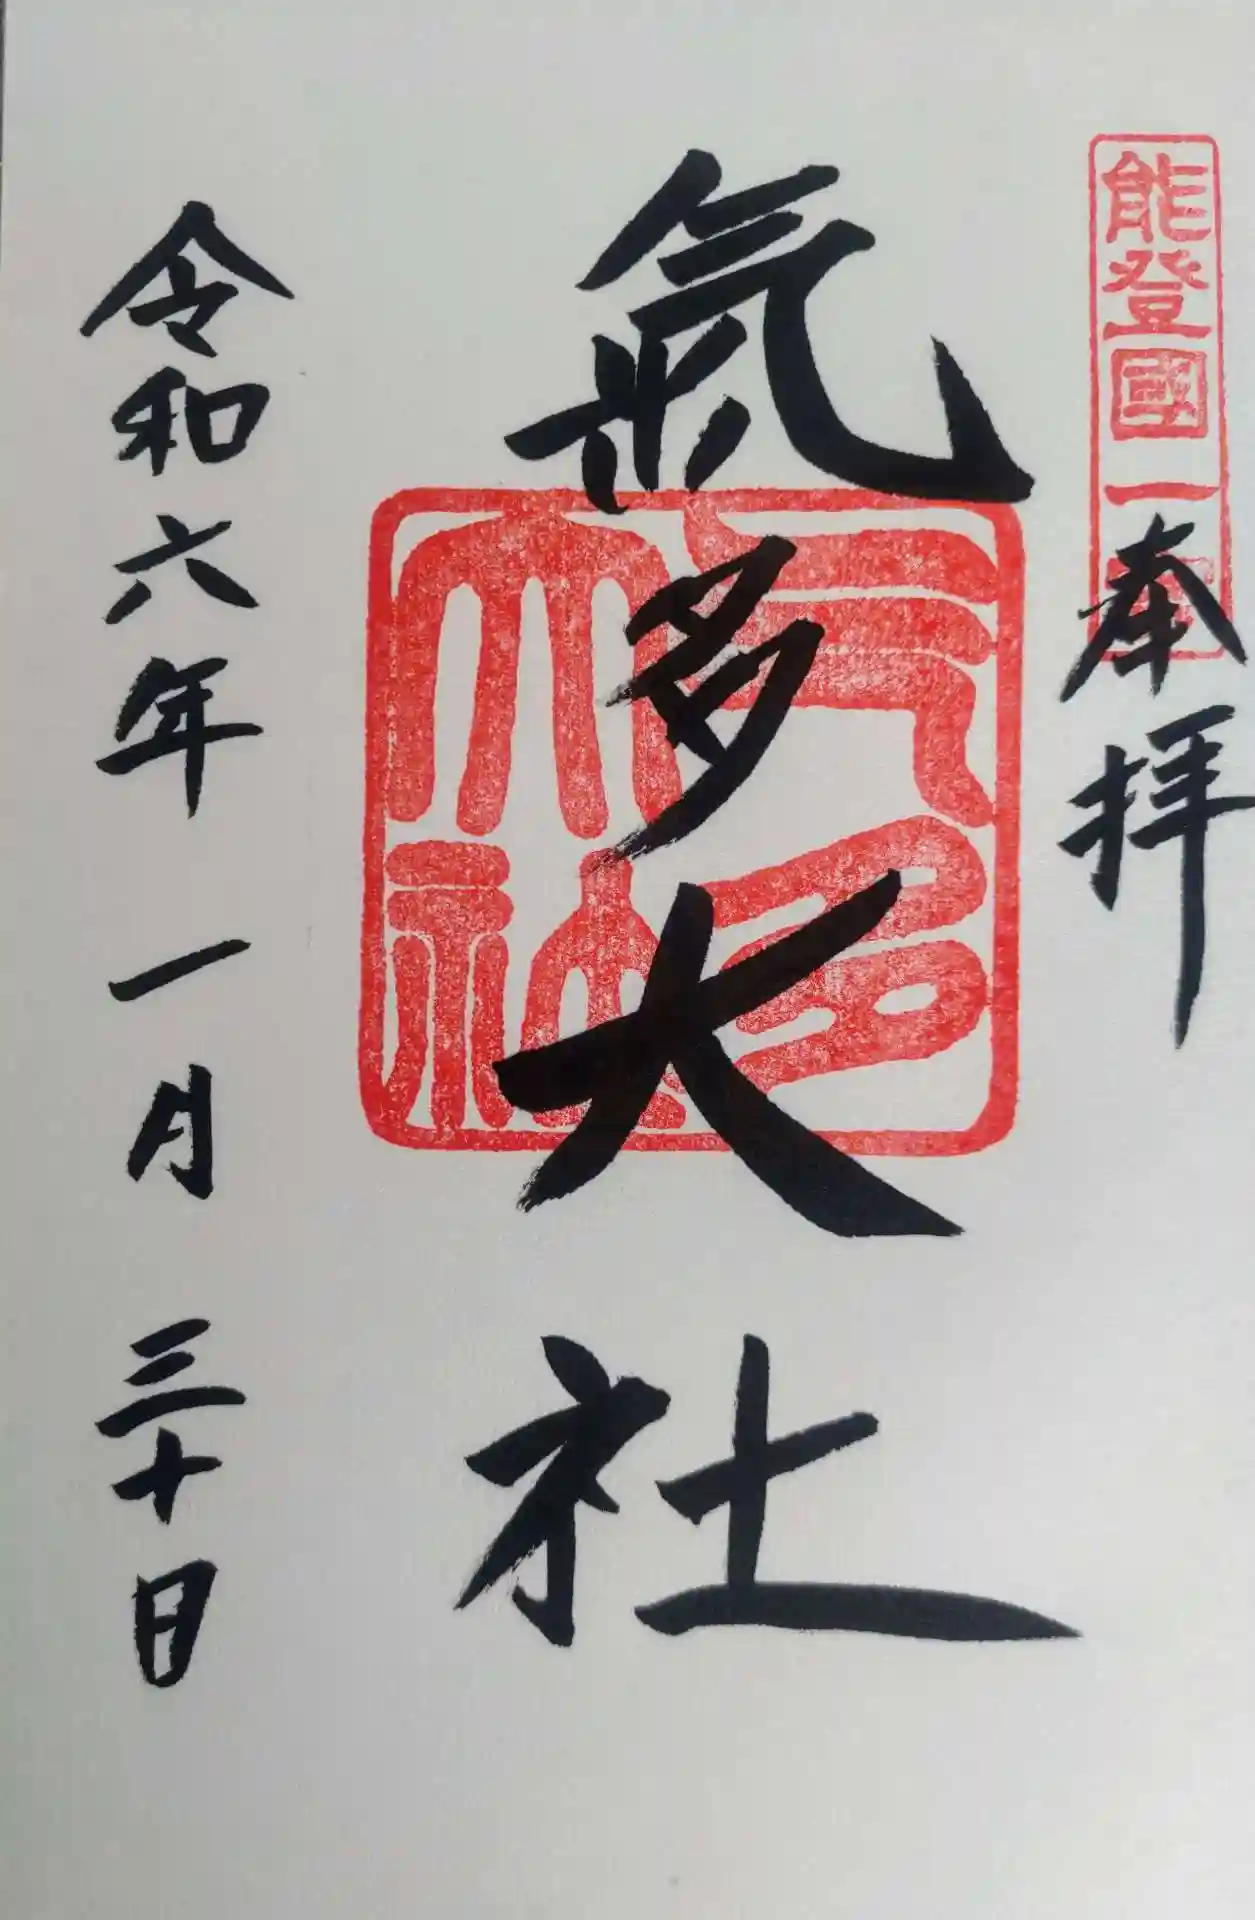 能登國一宮
奉拝
氣多大社
气多大社
令和六年一月三十日